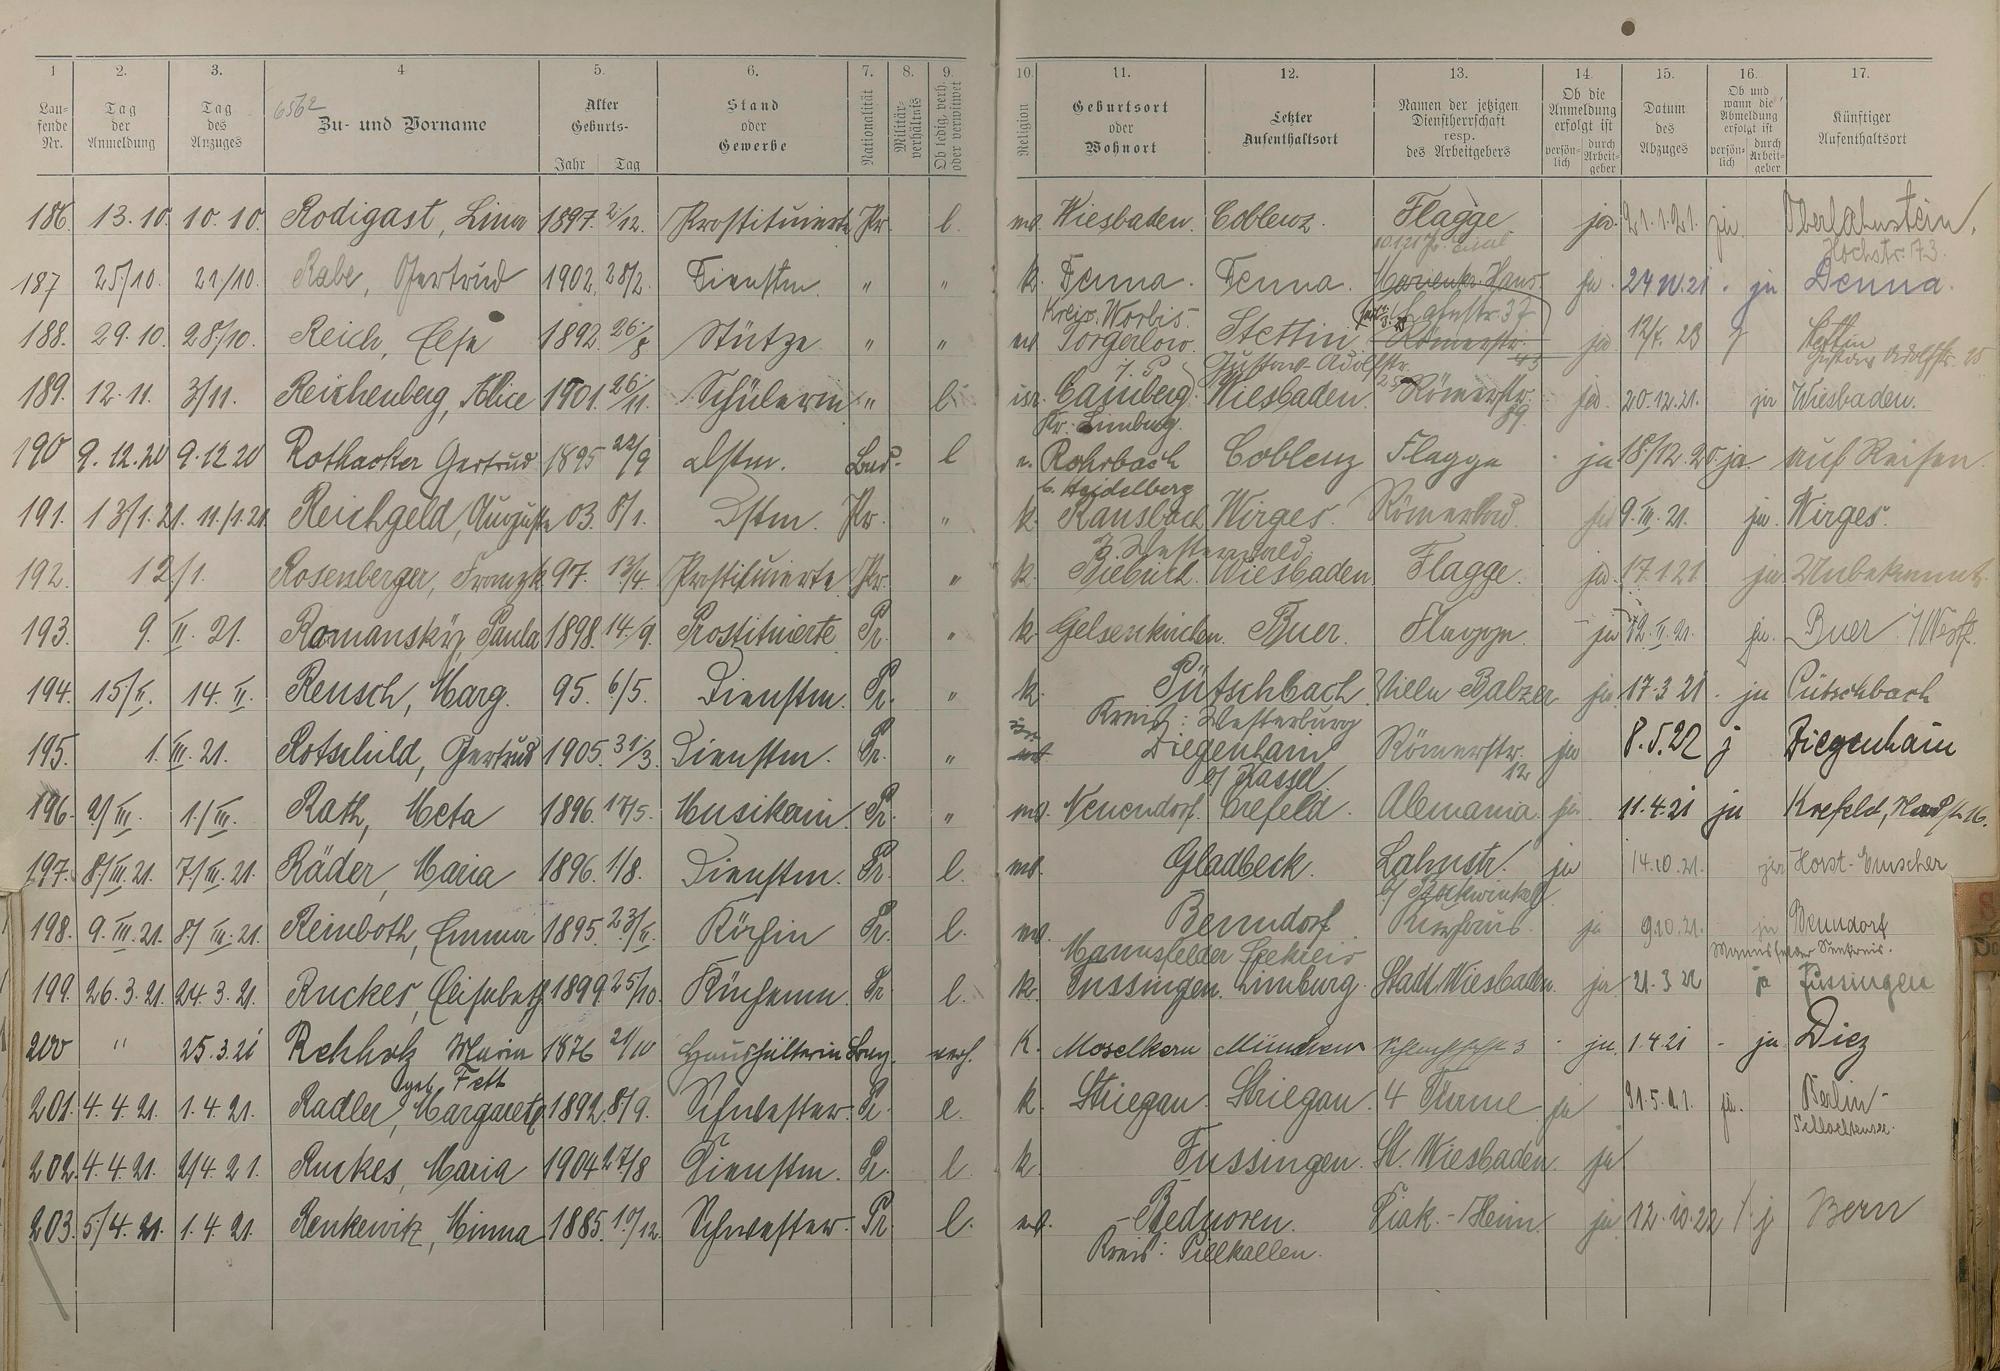 1 2. 3. 4 5. 6. 7. 8. 9. 10. 11. 12. 13. 14. 15. 16. 17.
Laufende Nr. Tag der Anmeldung Tag des Anzuges 6562 Zu- und Vorname Alter Geburts- Jahr Tag Stand oder Gewerbe Nationalität Militärverhältnis Ob ledig, verh. oder verwitwet Religion Geburtsort oder Wohnort Letzter Aufenthaltsort Namen der jetzigen Dienstherrschaft resp. des Arbeitgebers Ob die Anmeldung erfolgt ist persönlich durch Arbeitgeber Datum des Abzuges Ob und wann die Abmeldung erfolgt ist persönlich durch Arbeitgeber Künftiger Aufenthaltsort
186. 13.10. 10.10. Rodigast, Lina 1897. 2/12. Prostituierte Pr. l. Wiesbaden. Coblenz. Flagge ja. 21.1.21. ja. Oberlahnstein,
Hochstr. 73.
187 25./10. 21/10. Rabe, Gertrud 1902. 28/2. Dienstm. " " k. ja. ja
Kreis Worbis. Lahnstr. 37
188. 29.10. 28/10. Reich, Else 1892. 26./8 Stütze " " Stettin Römerstr. 43 ja 12/5. 23 Stettin
Gustav-Adolfstr. 25 Gustav Adolfstr. 25
189. 12.11. 3/11. Reichenberg, Alice 1901. 26./11. Schülerin " l. isr. Camberg. Wiesbaden. Römerstr. 89. ja. 20.12.21. ja Wiesbaden.
Kr. Limburg.
190 9.12.20 9.12 20 Rothacker Gertrud 1895 22/9 Dstm. Bad. l Rohrbach Coblenz Flagge ja 18/12.20 ja. auf Reisen.
b. Heidelberg
191. 13/1.21. 11./1.21. Reichgeld, Auguste 03. 8/1. Dstm. Pr. " k. Ransbach Wirges. Römerbad. ja 9.III.21. ja. Wirges.
Westerwald.
192. 12/1. Rosenberger, Franzk 97. 13/4. Prostituierte Pr. " k. Biebrich. Wiesbaden. Flagge. ja. 17.1.21 ja Unbekannt.
193. 9. II. 21. Romansky, Paula 1898. 14./9. Prostituierte Pr. " k. Gelsenkirchen. Buer. Flagge. ja 12.II.21. ja. Buer i/Westf.
194. 15/II. 14. II. Reusch, Marg. 95. 6/5. Dienstm. Pr. " k. Pütschbach. Villa Balzer ja. 17.3 21. ja Pütschbach
Kreis: Westerburg
195. 1. III. 21. Rotschild, Gertrud 1905. 31/3. Dienstm. Pr. " isr. Ziegenhain Römerstr. 12 ja 8.5.22 j Ziegenhain
b/ Kassel
196. 2/III. 1./III. Rath, Meta 1896. 17/5. Musikerin. Pr. " Neuendorf. Crefeld. Alemania. ja. 11.4.21 ja Krefeld,
197. 8/III.21. 7/III.21. Räder, Maria 1896. 1/8. Dienstm. Pr. l. Gladbeck. Lahnstr. ja 14.10.21. ja Horst-Emscher
198. 9.III.21. 8/III.21. Reinboth, Emma 1895. 23/II. Köchin Pr. l. Benndorf Kurhaus. ja 9.10.21. ja Benndorf
Mannsfelder Seekreis Mannsfelder Seekreis.
199. 26.3.21. 24.3.21. Ruckes, Elisabeth 1899. 25/10. Küchenm. Pr l. k. Fussingen. Limburg. Stadt Wiesbaden. ja 21.3 22 ja Fussingen
200 " 25.3.21 Rehholz Maria 1876 21/10 Haushälterin Bay. verh. K. Moselkern München 3 - ja. 1.4 21 - ja. Diez
geb. Fett
201. 4.4.21. 1.4.21. Radler, Margarete 1892. 8/9. Schwester. Pr. l. k. Striegau. Striegau. 4 Türme ja 31.5.21. ja. Berlin-
202. 4.4.21. 2/4 21. Ruckes, Maria 1904 27/8 Dienstm. Pr. l. k. Fussingen. St. Wiesbaden. ja
203. 5/4.21. 1.4.21. Renkewitz, Minna 1885. 10/12. Schwester. Pr. l. Bednoren. Diak.-Heim ja 12.10.22 j. Bern
Kreis: Pillkallen.